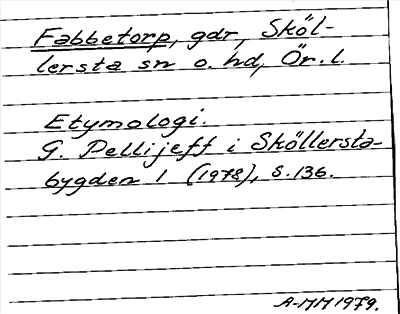 Fabbetorp, gdr, Sköl-
lersta sn o. hd, Ör. l.
Etymologi.
G. Pellijeff i Sköllersta-
bygden 1 (1978), s. 136.
A-MM 1979.